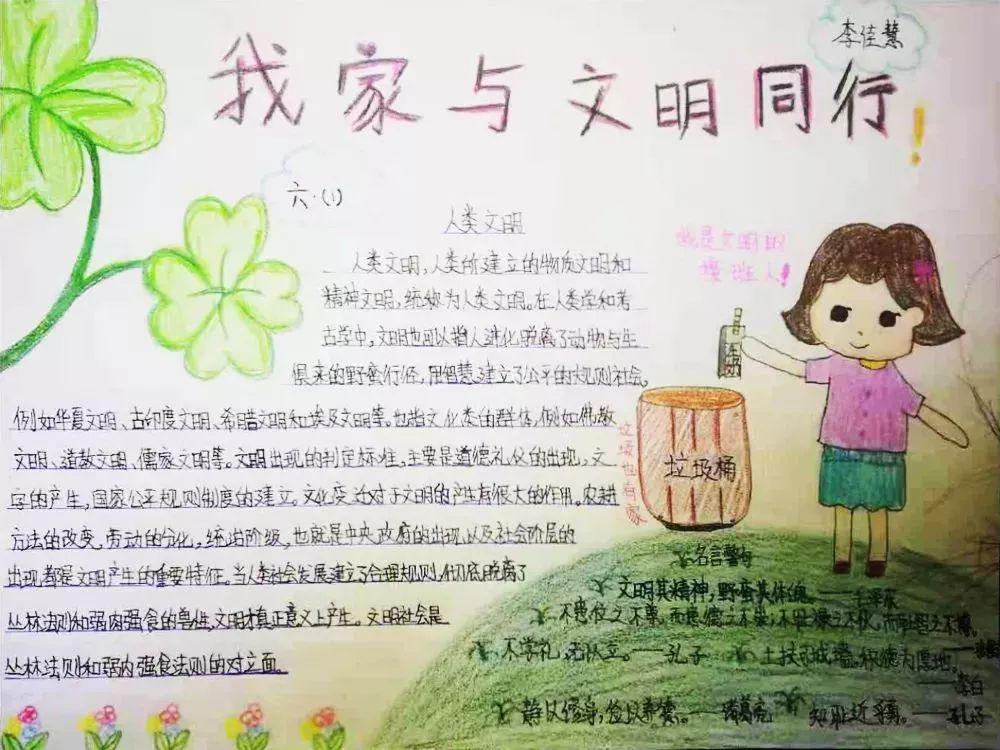 李佳慧
我家与文明同行！
六．(1)
人类文明
人类文明，人类所建立的物质文明和
精神文明，统称为人类文明。在人类学和考
古学中，文明也可以指人进化脱离了动物与生
俱来的野蛮行径，用智慧建立了公平的规则社会。
例如华夏文明、古印度文明、希腊文明和埃及文明等。也指文化类的群体，例如佛教
文明、道教文明、儒家文明等。文明出现的判定标准，主要是道德礼仪的出现，文
字的产生，国家公平规则制度的建立。文化变迁对于文明的产生有很大的作用。农耕
方法的改变，劳动的分化，统治阶级，也就是中央政府的出现以及社会阶层的
出现，都是文明产生的重要特征。当人类社会发展建立了合理规则，彻底脱离了
丛林法则和弱肉强食的兽性，文明才真正意义上产生。文明社会是
丛林法则和弱肉强食法则的对立面。
我是文明的
接班人！
垃圾也有家
垃圾桶
名言警句
文明其精神，野蛮其体魄——毛泽东
不患位之不尊，而患德之不崇；不耻禄之不伙，而耻智之不博。
不学礼，无以立。——孔子
土扶可成墙，积德为厚地。
——李白
静以修身，俭以养德。——诸葛亮
知耻近乎勇。——孔子